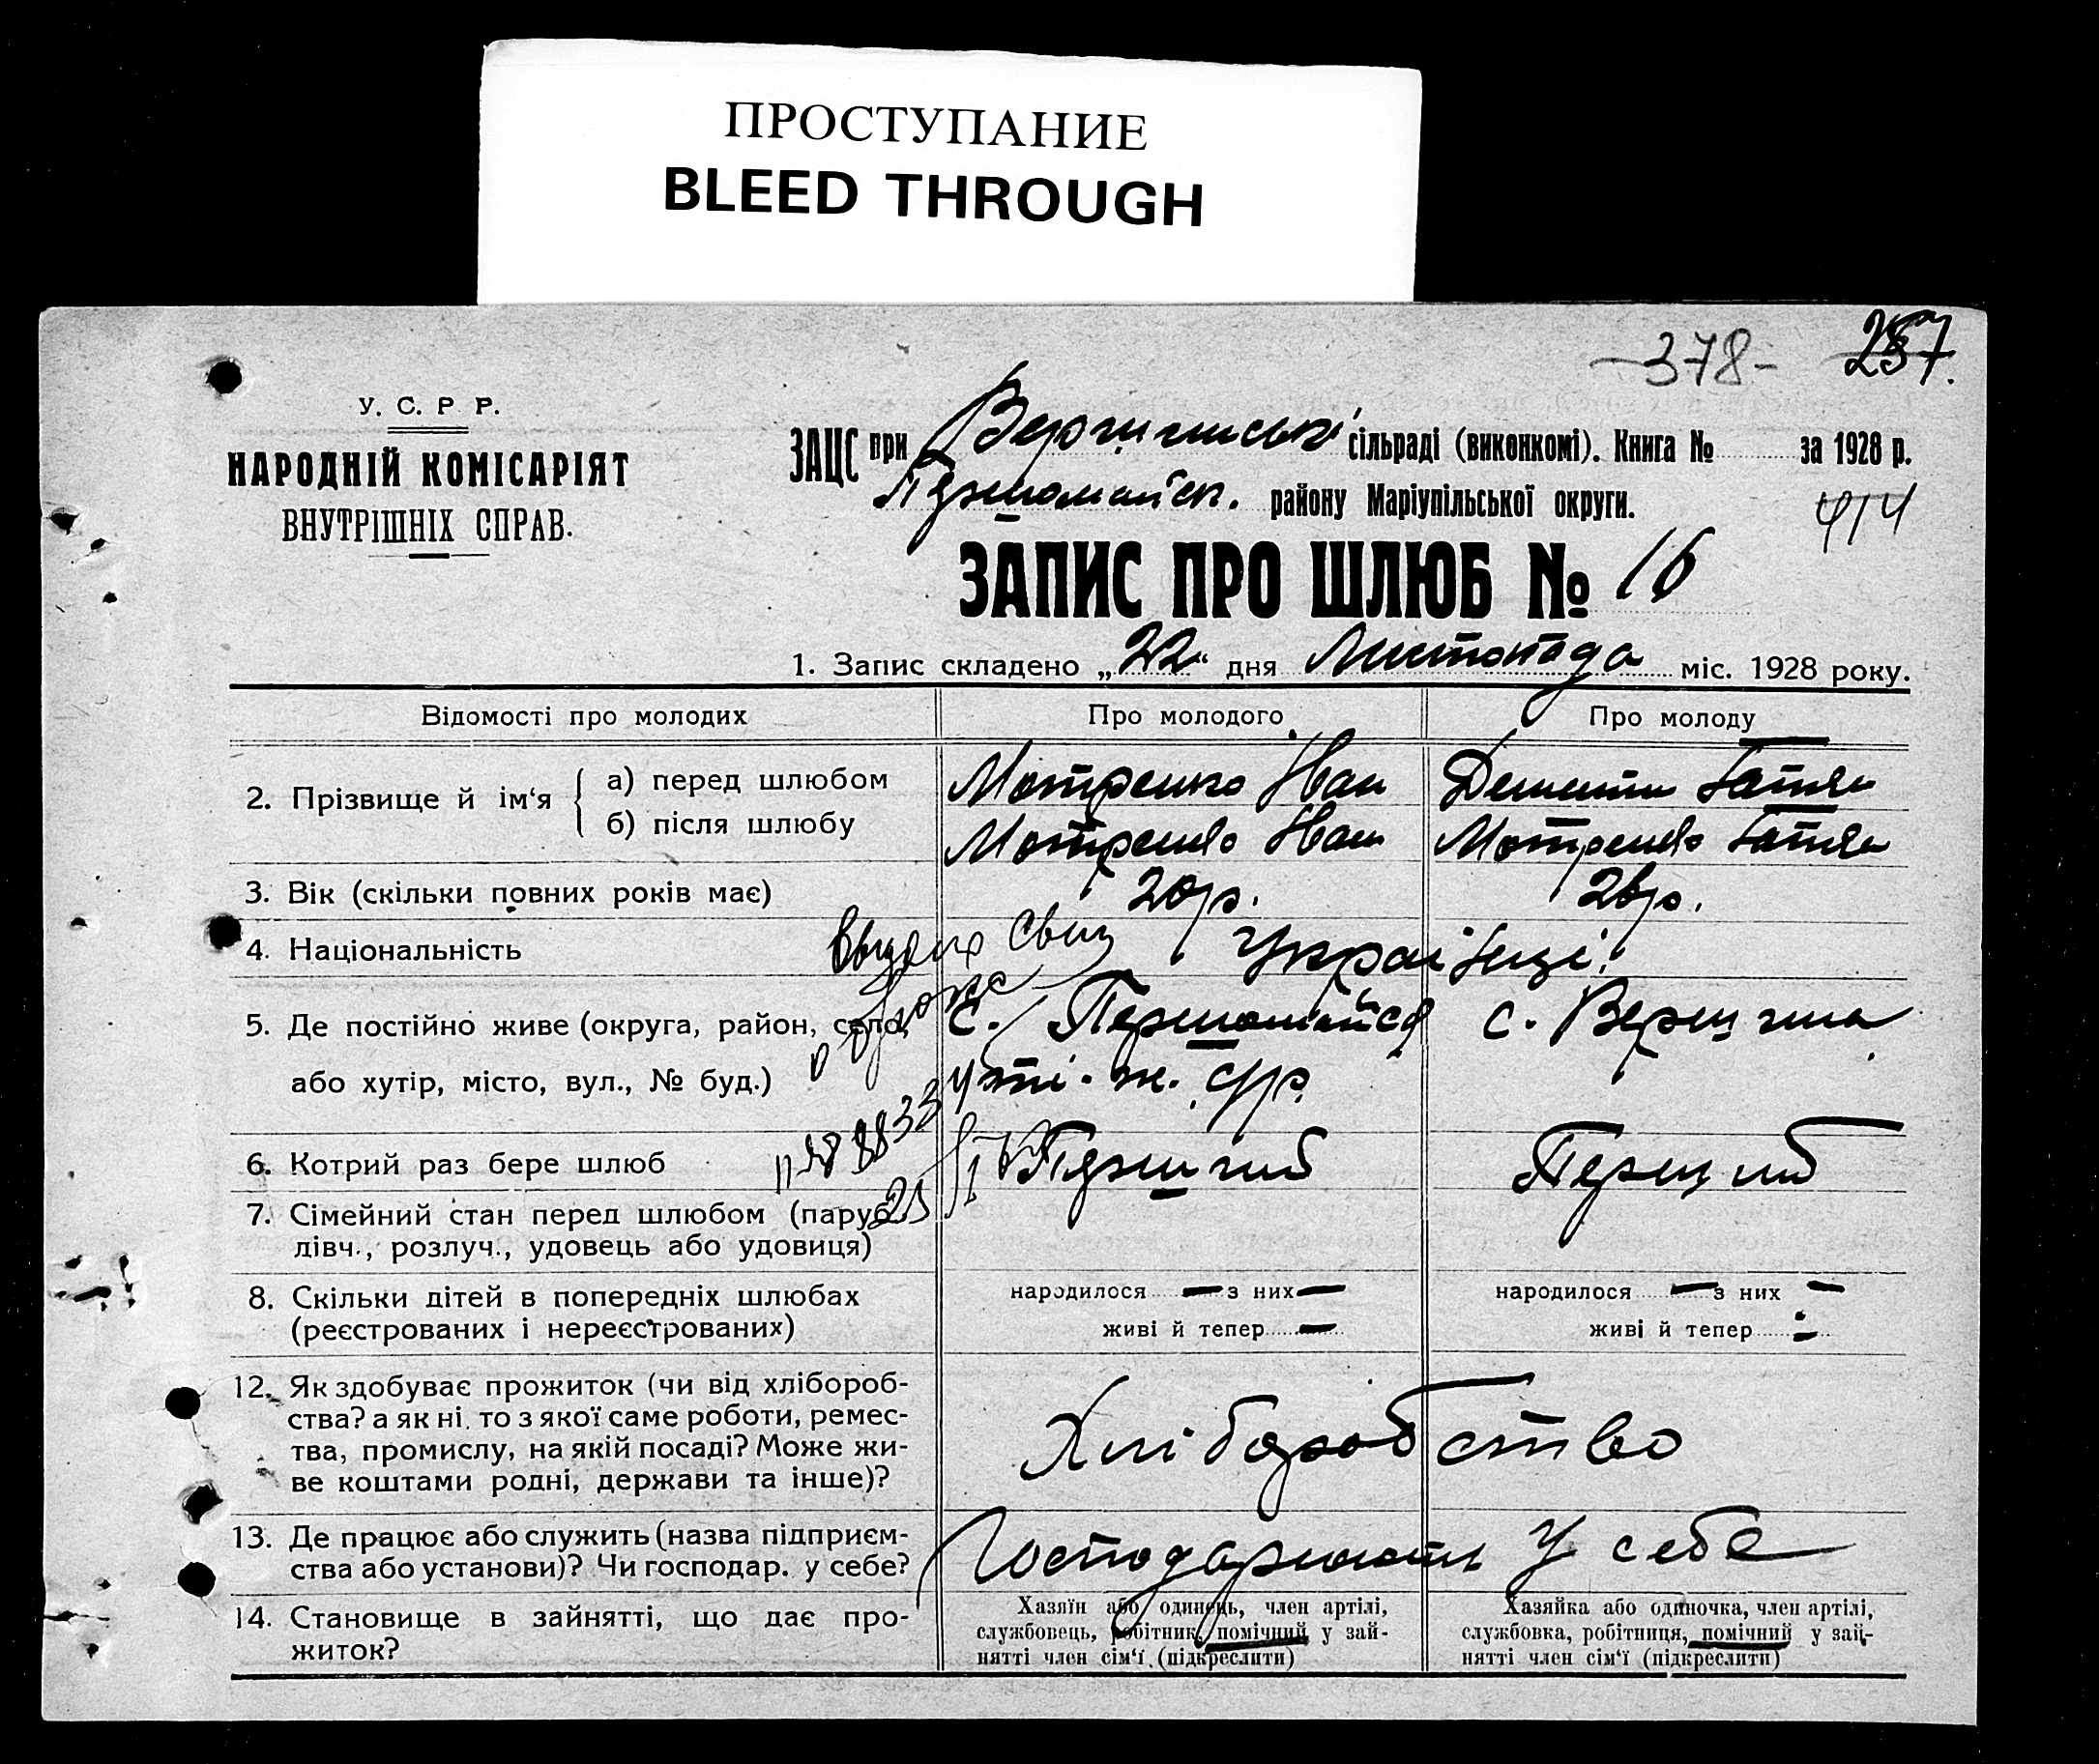 ПРОСТУПАНИЕ
BLEED THROUGH
-378- 257.
У. С. Р Р.
НАРОДНІЙ КОМІСАРІЯТ
ВНУТРІШНІХ СПРАВ.
ЗАЦС при сільраді (виконкомі). Книга № за 1928 р.
Першомайск. району Маріупільської округи.
414
ЗАПИС ПРО ШЛЮБ № 16
1. Запис складено „22“ дня Листопада міс. 1928 року.
Відомості про молодих Про молодого Про молоду
2. Прізвище й ім‘я а) перед шлюбом Мотренко Иван
б) після шлюбу Мотренко Иван Мотренко
3. Вік (скільки повних років має) 20 р. 26 р.
4. Національність Українці
5. Де постійно живе (округа, район, село, с. с. Вершина
або хутір, місто, вул., № буд.)
6. Котрий раз бере шлюб Перший Перший
7. Сімейний стан перед шлюбом (паруб.
дівч., розлуч., удовець або удовиця)
8. Скільки дітей в попередніх шлюбах народилося — з них — народилося — з них —
(реєстрованих і нереєстрованих) живі й тепер — живі й тепер —
12. Як здобуває прожиток (чи від хлібороб-
ства? а як ні, то з якої саме роботи, ремес-
тва, промислу, на якій посаді? Може жи-
ве коштами родні, держави та інше)?
Хліборобство
13. Де працює або служить (назва підприєм-
ства або установи)? Чи господар. у себе?
Господарюють у себе
14. Становище в зайнятті, що дає про-
житок?
Хазяїн або одинець, член артілі,
службовець, робітник, помічний у зай-
нятті член сім‘ї (підкреслити)
Хазяйка або одиночка, член артілі,
службовка, робітниця, помічний у зай-
нятті член сім‘ї (підкреслити)